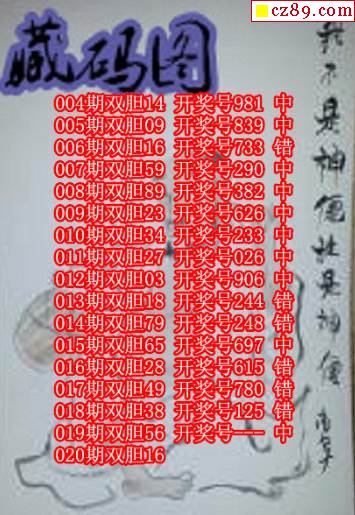 cz89.com
藏码图
004期双胆14 开奖号981 中
005期双胆09 开奖号839 中
006期双胆16 开奖号733 错
007期双胆59 开奖号290 中
008期双胆89 开奖号382 中
009期双胆23 开奖号626 中
010期双胆34 开奖号233 中
011期双胆27 开奖号026 中
012期双胆03 开奖号906 中
013期双胆18 开奖号244 错
014期双胆79 开奖号248 错
015期双胆65 开奖号697 中
016期双胆28 开奖号615 错
017期双胆49 开奖号780 错
018期双胆38 开奖号125 错
019期双胆56 开奖号--- 中
020期双胆16
我不是神便社是神僧